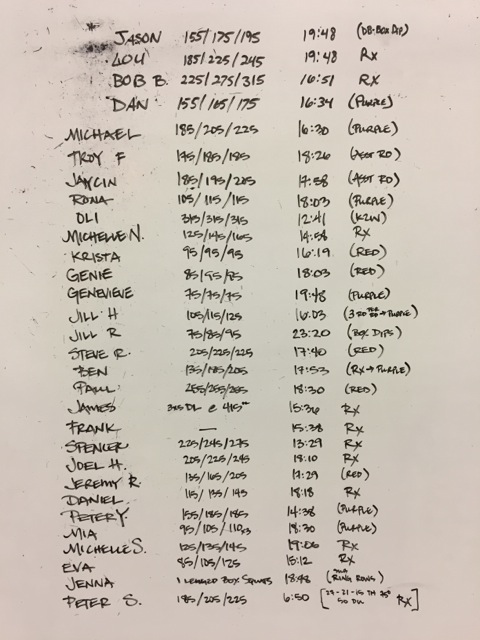 JASON 155/175/195 19:48 (DB-BOX DIP)
LOU 185/225/245 19:48 RX
BOB B. 225/275/315 16:51 RX
DAN 155/165/175 16:34 (PURPLE)
MICHAEL 185/205/225 16:30 (PURPLE)
TROY F 175/185/185 18:26 (ASST RD)
JAYCIN 185/195/205 17:58 (ASST RD)
RONA 105/115/115 18:03 (PURPLE)
OLI 315/315/315 12:41
MICHELLE N. 125/145/165 14:58 RX
KRISTA 95/95/95 16:19 (RED)
GENIE 85/95/95 18:03 (RED)
GENEVIEVE 75/75/75 19:48 (PURPLE)
JILL H 105/115/125 16:03 PURPLE)
JILL R 75/85/95 23:20 (BOX DIPS)
STEVE R. 205/225/225 17:40 (RED)
BEN 135/185/205 17:53 (RX→PURPLE)
PAUL 255/255/255 18:30 (RED)
JAMES DL @ 415 15:36 RX
FRANK — 15:38 RX
SPENCER 225/245/275 13:29 RX
JOEL H. 205/225/245 18:10 RX
JEREMY R. 135/165/205 17:29 (RED)
DANIEL 115/135/145 18:18 RX
PETER Y. 155/185/185 14:38 (PURPLE)
MIA 95/105/110x3 18:30 (PURPLE)
MICHELLE S. 125/135/145 19:06 RX
EVA 85/105/125 15:12 RX
JENNA 1 LEGGED BOX SQUATS 18:48 RING ROWS)
PETER S. 185/205/225 6:50 RX]